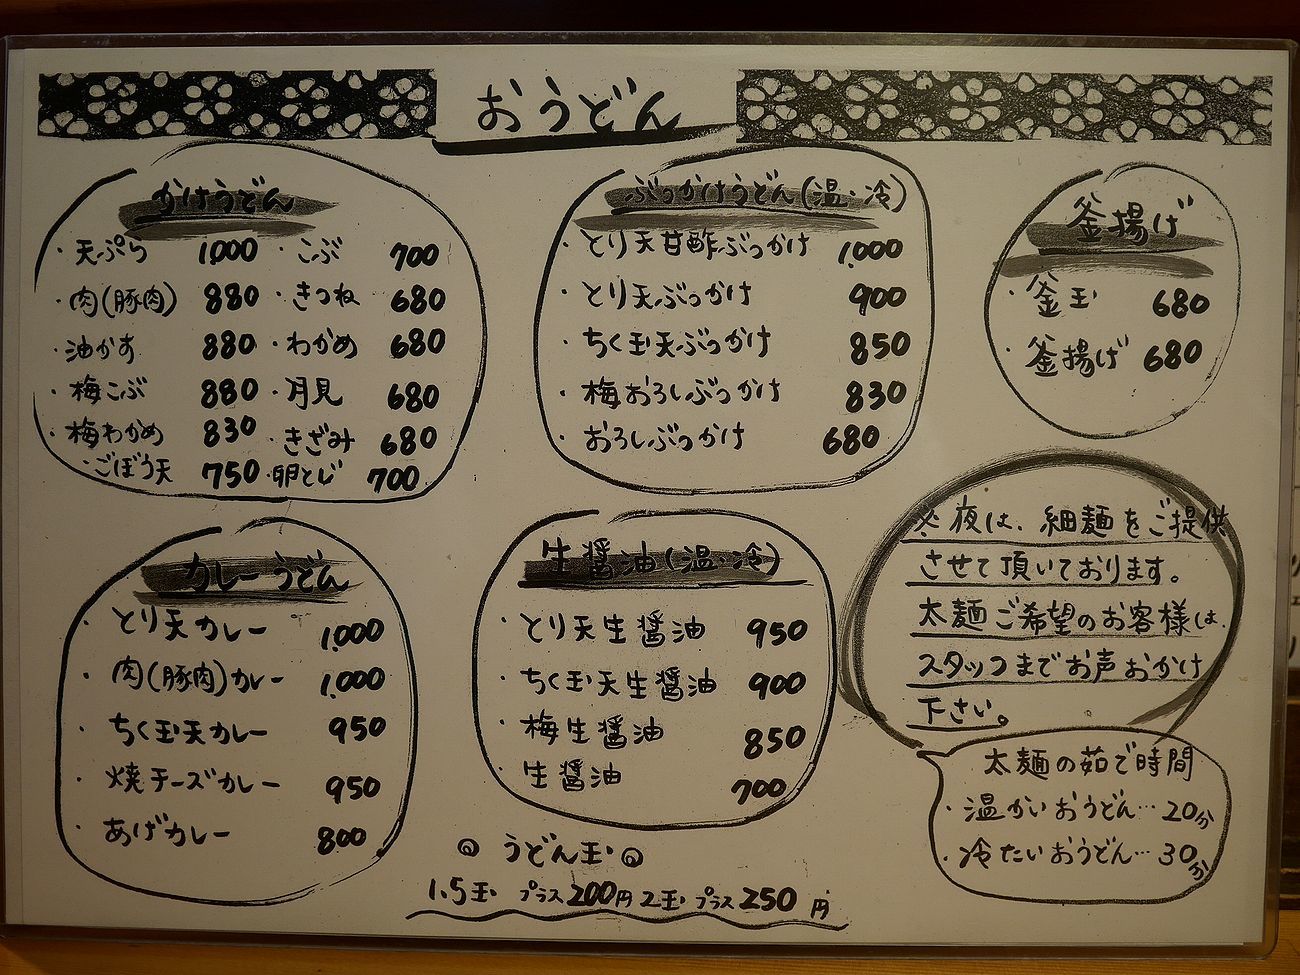 おうどん
かけうどん
・天ぷら 1,000 ・こぶ 700
・肉(豚肉) 880 ・きつね 680
・油かす 880 ・わかめ 680
・梅こぶ 880 ・月見 680
・梅わかめ 830 ・きざみ 680
・ごぼう天 750 ・卵とじ 700
ぶっかけうどん(温・冷)
・とり天甘酢ぶっかけ 1,000
・とり天ぶっかけ 900
・ちく玉天ぶっかけ 850
・梅おろしぶっかけ 830
・おろしぶっかけ 680
釜揚げ
・釜玉 680
・釜揚げ 680
カレーうどん
・とり天カレー 1,000
・肉(豚肉)カレー 1,000
・ちく玉天カレー 950
・焼チーズカレー 950
・あげカレー 800
生醤油(温・冷)
・とり天生醤油 950
・ちく玉天生醤油 900
・梅生醤油 850
・生醤油 700
※夜は、細麺をご提供
させて頂いております。
太麺ご希望のお客様は、
スタッフまでお声おかけ
下さい。
太麺の茹で時間
・温かいおうどん…20分
・冷たいおうどん…30分
◎うどん玉◎
1.5玉 プラス200円 2玉 プラス250円